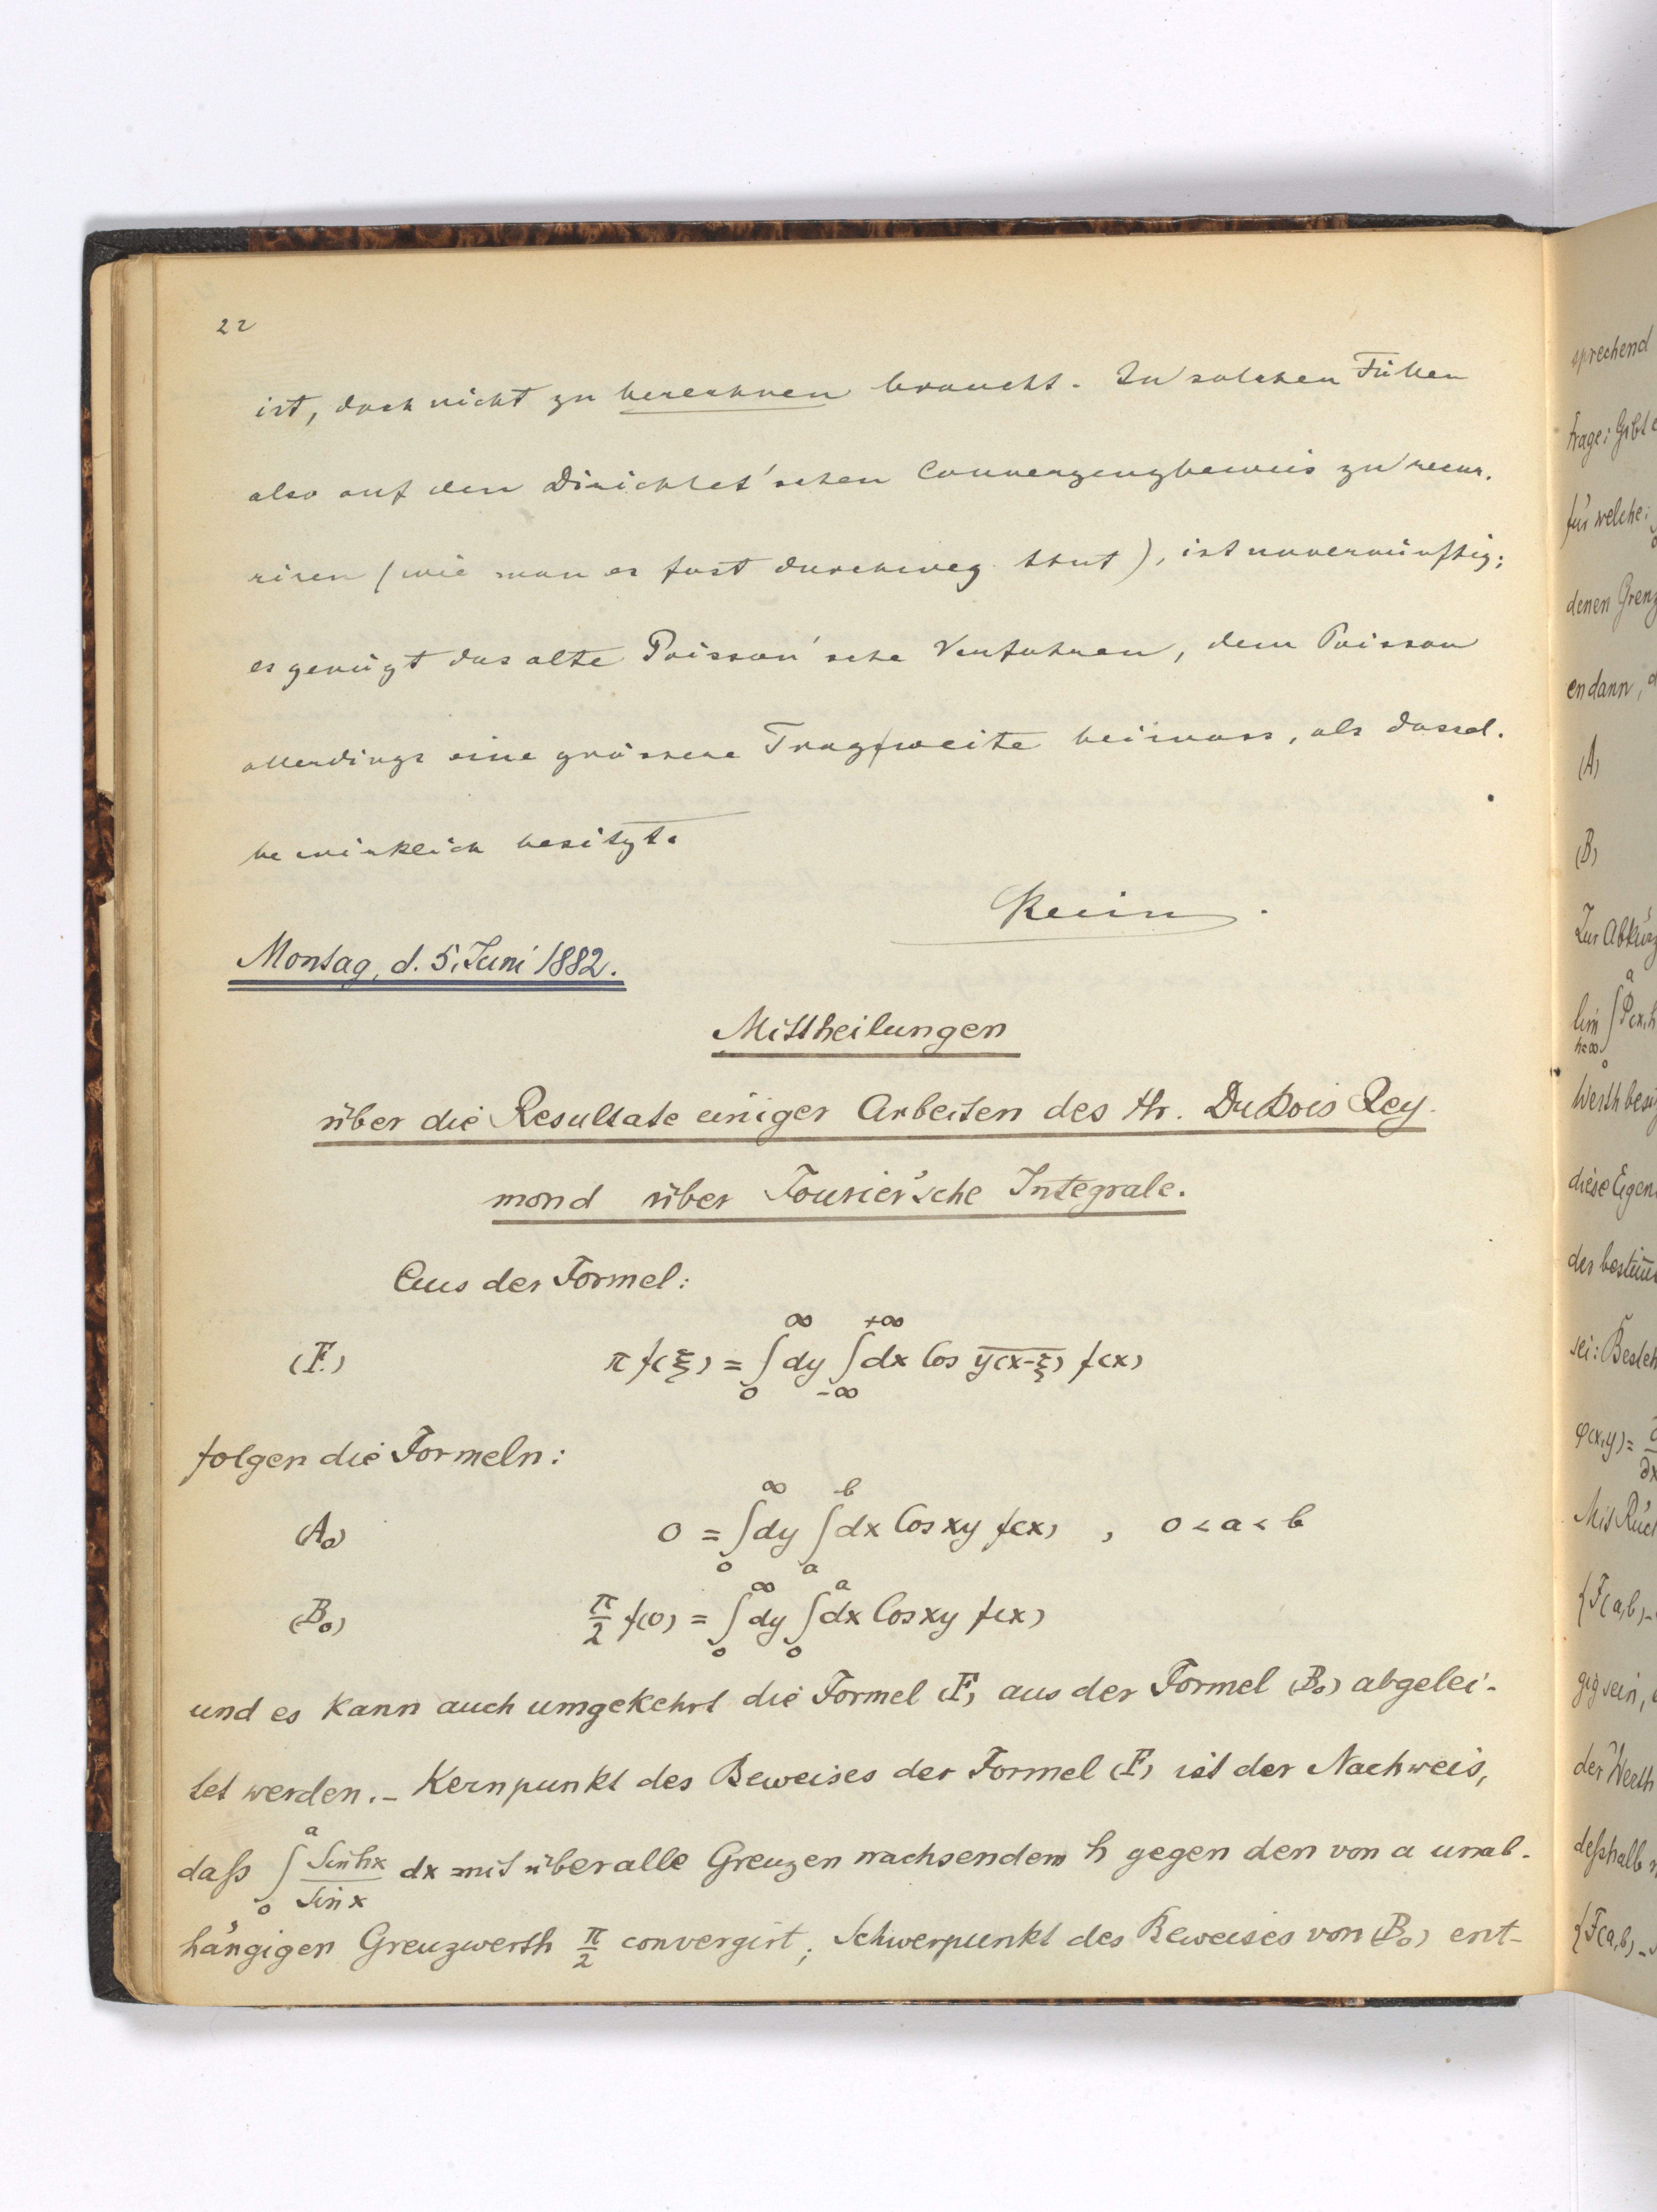 22
ist, doch nicht zu berechnen braucht. In solchen Fällen
also auf den Dirichlet'schen Convergenzbeweis zu recur-
riren (wie man es fast durchweg thut), ist unvernünftig;
es genügt das alte Poisson'sche Verfahren, dem Poisson
allerdings eine grössere Tragweite beimass, als dassel-
be wirklich besitzt.
Montag, d. 5. Juni 1882.
Mittheilungen
über die Resultate einiger Arbeiten des Hr. Du Bois Rey-
mond über Fourier'sche Integrale.
Aus der Formel:
(F.) π f(ξ) = ∫_0^∞ dy ∫_{-∞}^{+∞} dx Cos y(x-ξ) f(x)
folgen die Formeln:
(A₀) 0 = ∫_0^∞ dy ∫_a^b dx Cos xy f(x) , 0 < a < b
(B₀) π/2 f(0) = ∫_0^∞ dy ∫_0^a dx Cos xy f(x)
und es kann auch umgekehrt die Formel (F) aus der Formel (B₀) abgelei-
tet werden. – Kernpunkt des Beweises der Formel (F) ist der Nachweis,
daß ∫_0^a Sin hx / Sin x dx mit über alle Grenzen wachsendem h gegen den von a unab-
hängigen Grenzwerth π/2 convergirt; Schwerpunkt des Beweises von (B₀) ent-
sprechend
Frage: Gibt e
für welche:
denen Grenz
en dann, d
(A)
(B)
Zur Abkürz
lim ∫_0^a Φ(x,h
h=∞
Werth besi
diese Eigen
der bestim
sei: Besteh
φ(x,y) =
Mit Rück
{F(a,b) -
gig sein,
der Werth
deßhalb
{F(a,b) -